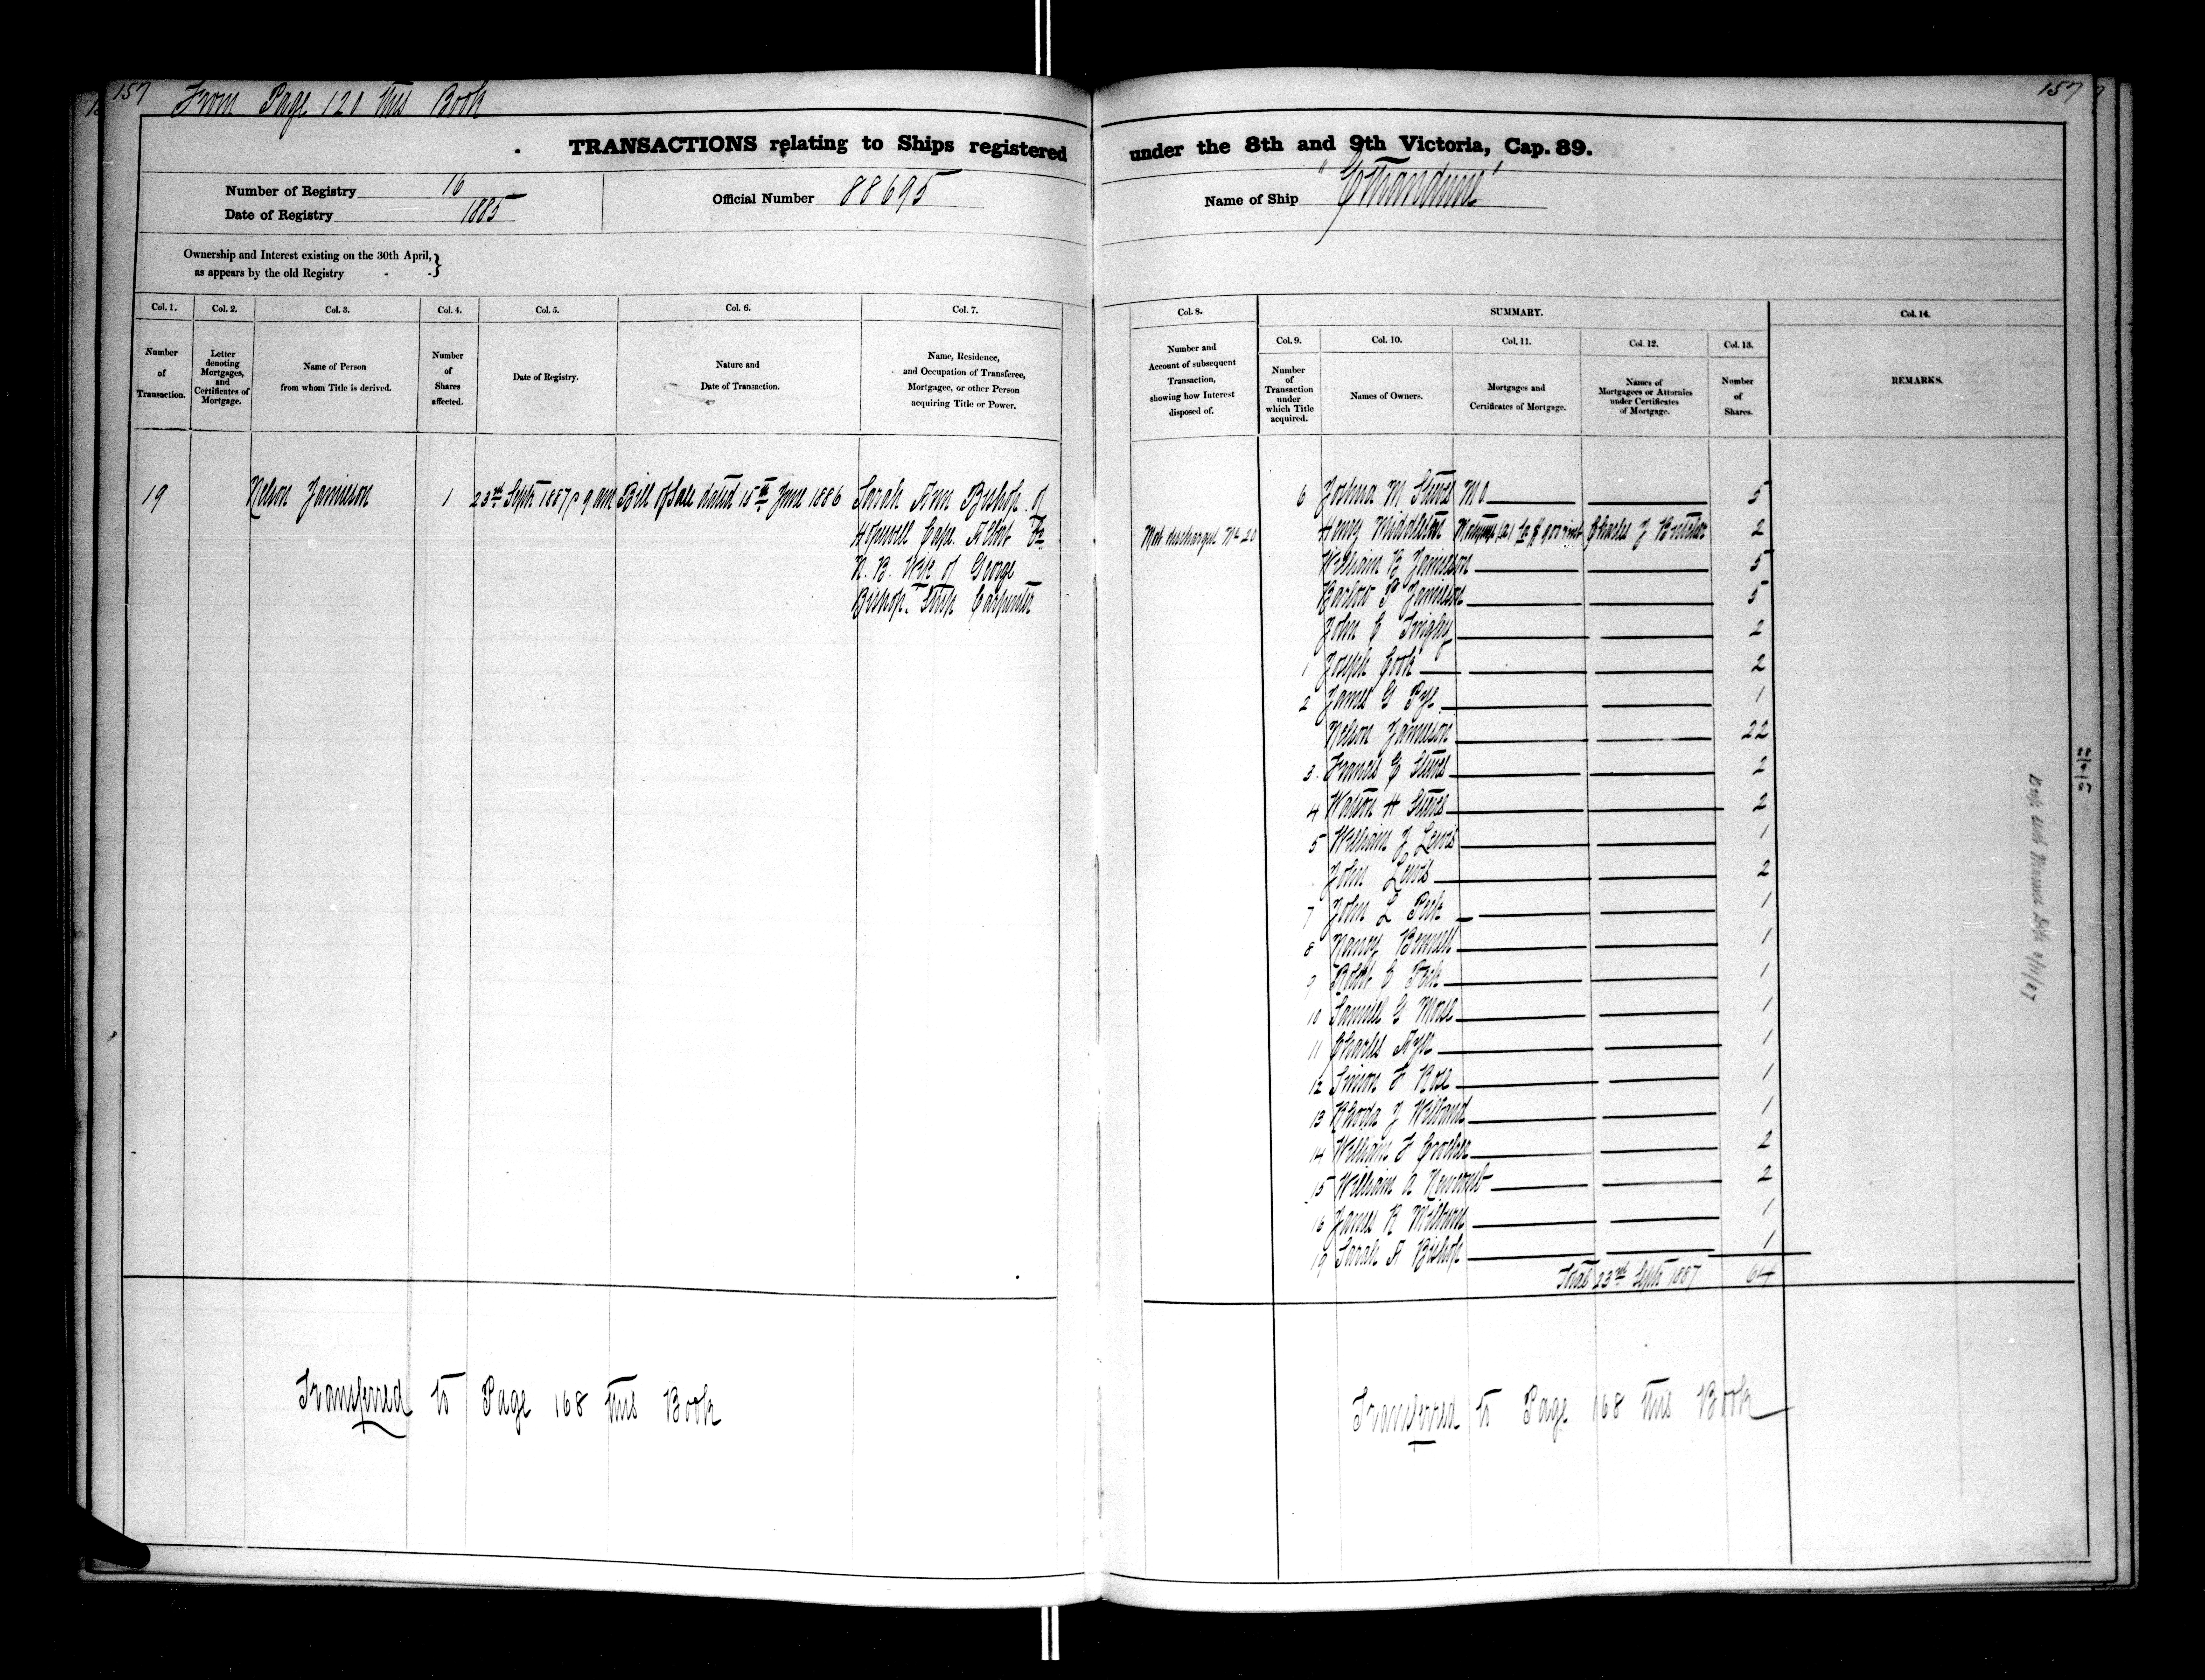 157 From Page 120 this Book
157
TRANSACTIONS relating to Ships registered under the 8th and 9th Victoria, Cap. 89.
Number of Registry 16
Date of Registry 1885
Official Number 88695
Name of Ship "Ethandune"
Ownership and Interest existing on the 30th April,
as appears by the old Registry
Col. 1. Col. 2. Col. 3. Col. 4. Col. 5. Col. 6. Col. 7.
Number of Transaction.
Letter denoting Mortgages, and Certificates of Mortgage.
Name of Person from whom Title is derived.
Number of Shares affected.
Date of Registry.
Nature and Date of Transaction.
Name, Residence, and Occupation of Transferee, Mortgagee, or other Person acquiring Title or Power.
Col. 8. SUMMARY. Col. 14.
Col. 9. Col. 10. Col. 11. Col. 12. Col. 13.
Number and Account of subsequent Transaction, showing how Interest disposed of.
Number of Transaction under which Title acquired.
Names of Owners.
Mortgages and Certificates of Mortgage.
Names of Mortgagees or Attornies under Certificates of Mortgage.
Number of Shares.
REMARKS.
19 Nelson Jamieson 1 23rd Sept 1887 9 am Bill of Sale dated 15th June 1886 Sarah Ann Bishop of
Hopewell Cape Albert Co
N. B. Wife of George
Bishop Ship Carpenter
6 Joshua M Steves 5
Mort discharged No 20 Henry Middleton Charles J 2
William B Jamieson 5
Barlow P Jamieson 5
John C Tingley 2
1 Joseph Cook 2
2 James G Pye 1
Nelson Jamieson 22
3 Francis C Steves 2
4 Watson H Steves 2
5 William J Lewis 1
John Lewis 2
7 John L Peck 1
8 Nancy Bennett 1
9 Robt C Peck 1
10 Samuel G Morse 1
11 Charles Ayer 1
12 Simon F Rose 1
13 Rhoda J 1
14 William F 2
15 William A Newcomb 2
16 James R 1
19 Sarah A Bishop 1
Total 23rd Sept 1887 64
Transferred to Page 168 this Book
Transferred to Page 168 this Book